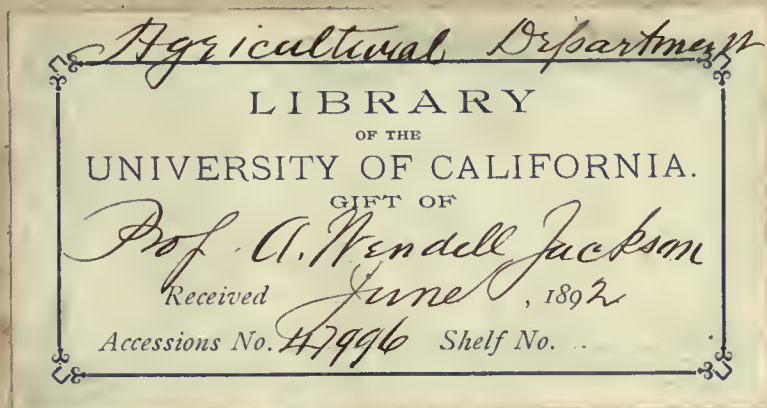 Agricultural Department
LIBRARY
OF THE
UNIVERSITY OF CALIFORNIA.
GIFT OF
Prof. A. Wendell Jackson
Received June, 1892
Accessions No. 47996 Shelf No.